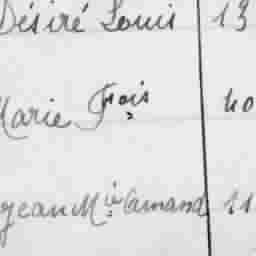 Désiré Louis 13
Marie Fçois 40
jean Mie Camand 11